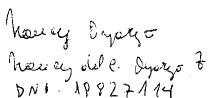 Nancy Oyarzo
Nancy del C. Oyarzo Z
DNI. 18827114